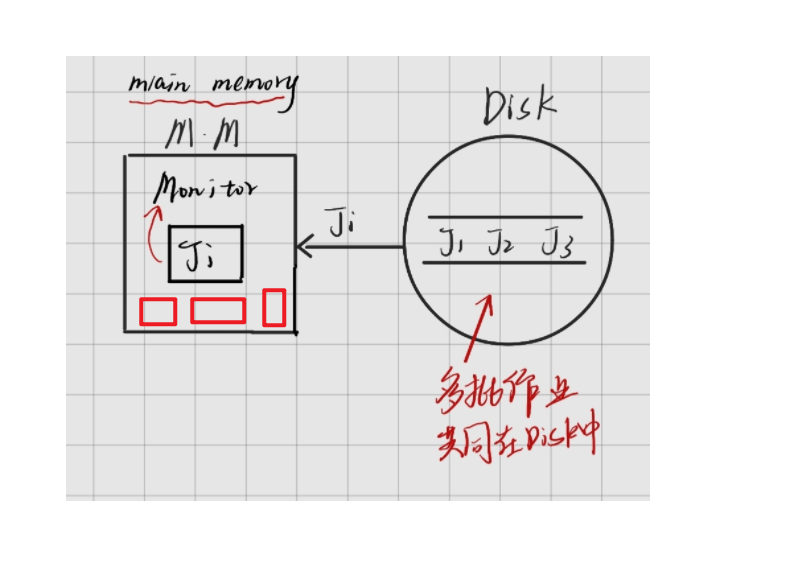 main memory
M.M
Monitor
Ji
Ji
Disk
J1 J2 J3
多批作业
共同在Disk中